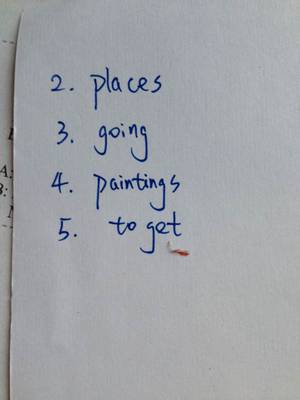 2. places
3. going
4. paintings
5. to get
A: